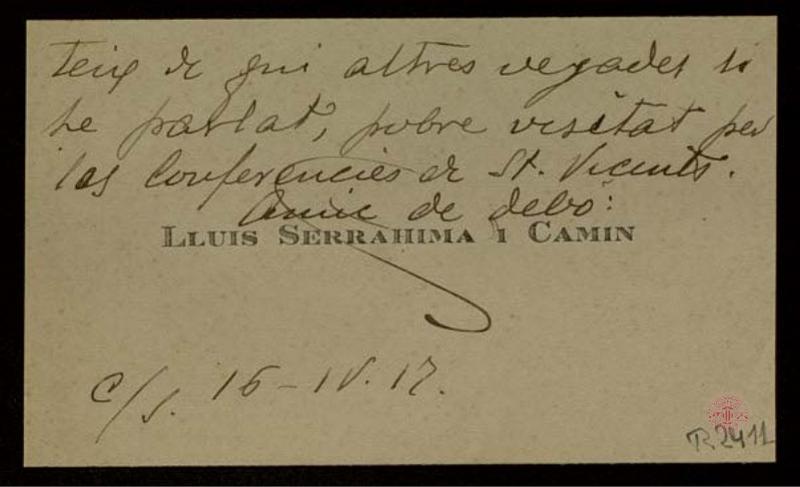 teix de qui altres vegades li
he parlat, pobre visitat per
las Conferencies de St. Vicents.
Amic de debò:
LLUIS SERRAHIMA I CAMIN
c/s. 16-IV.17.
R.2411